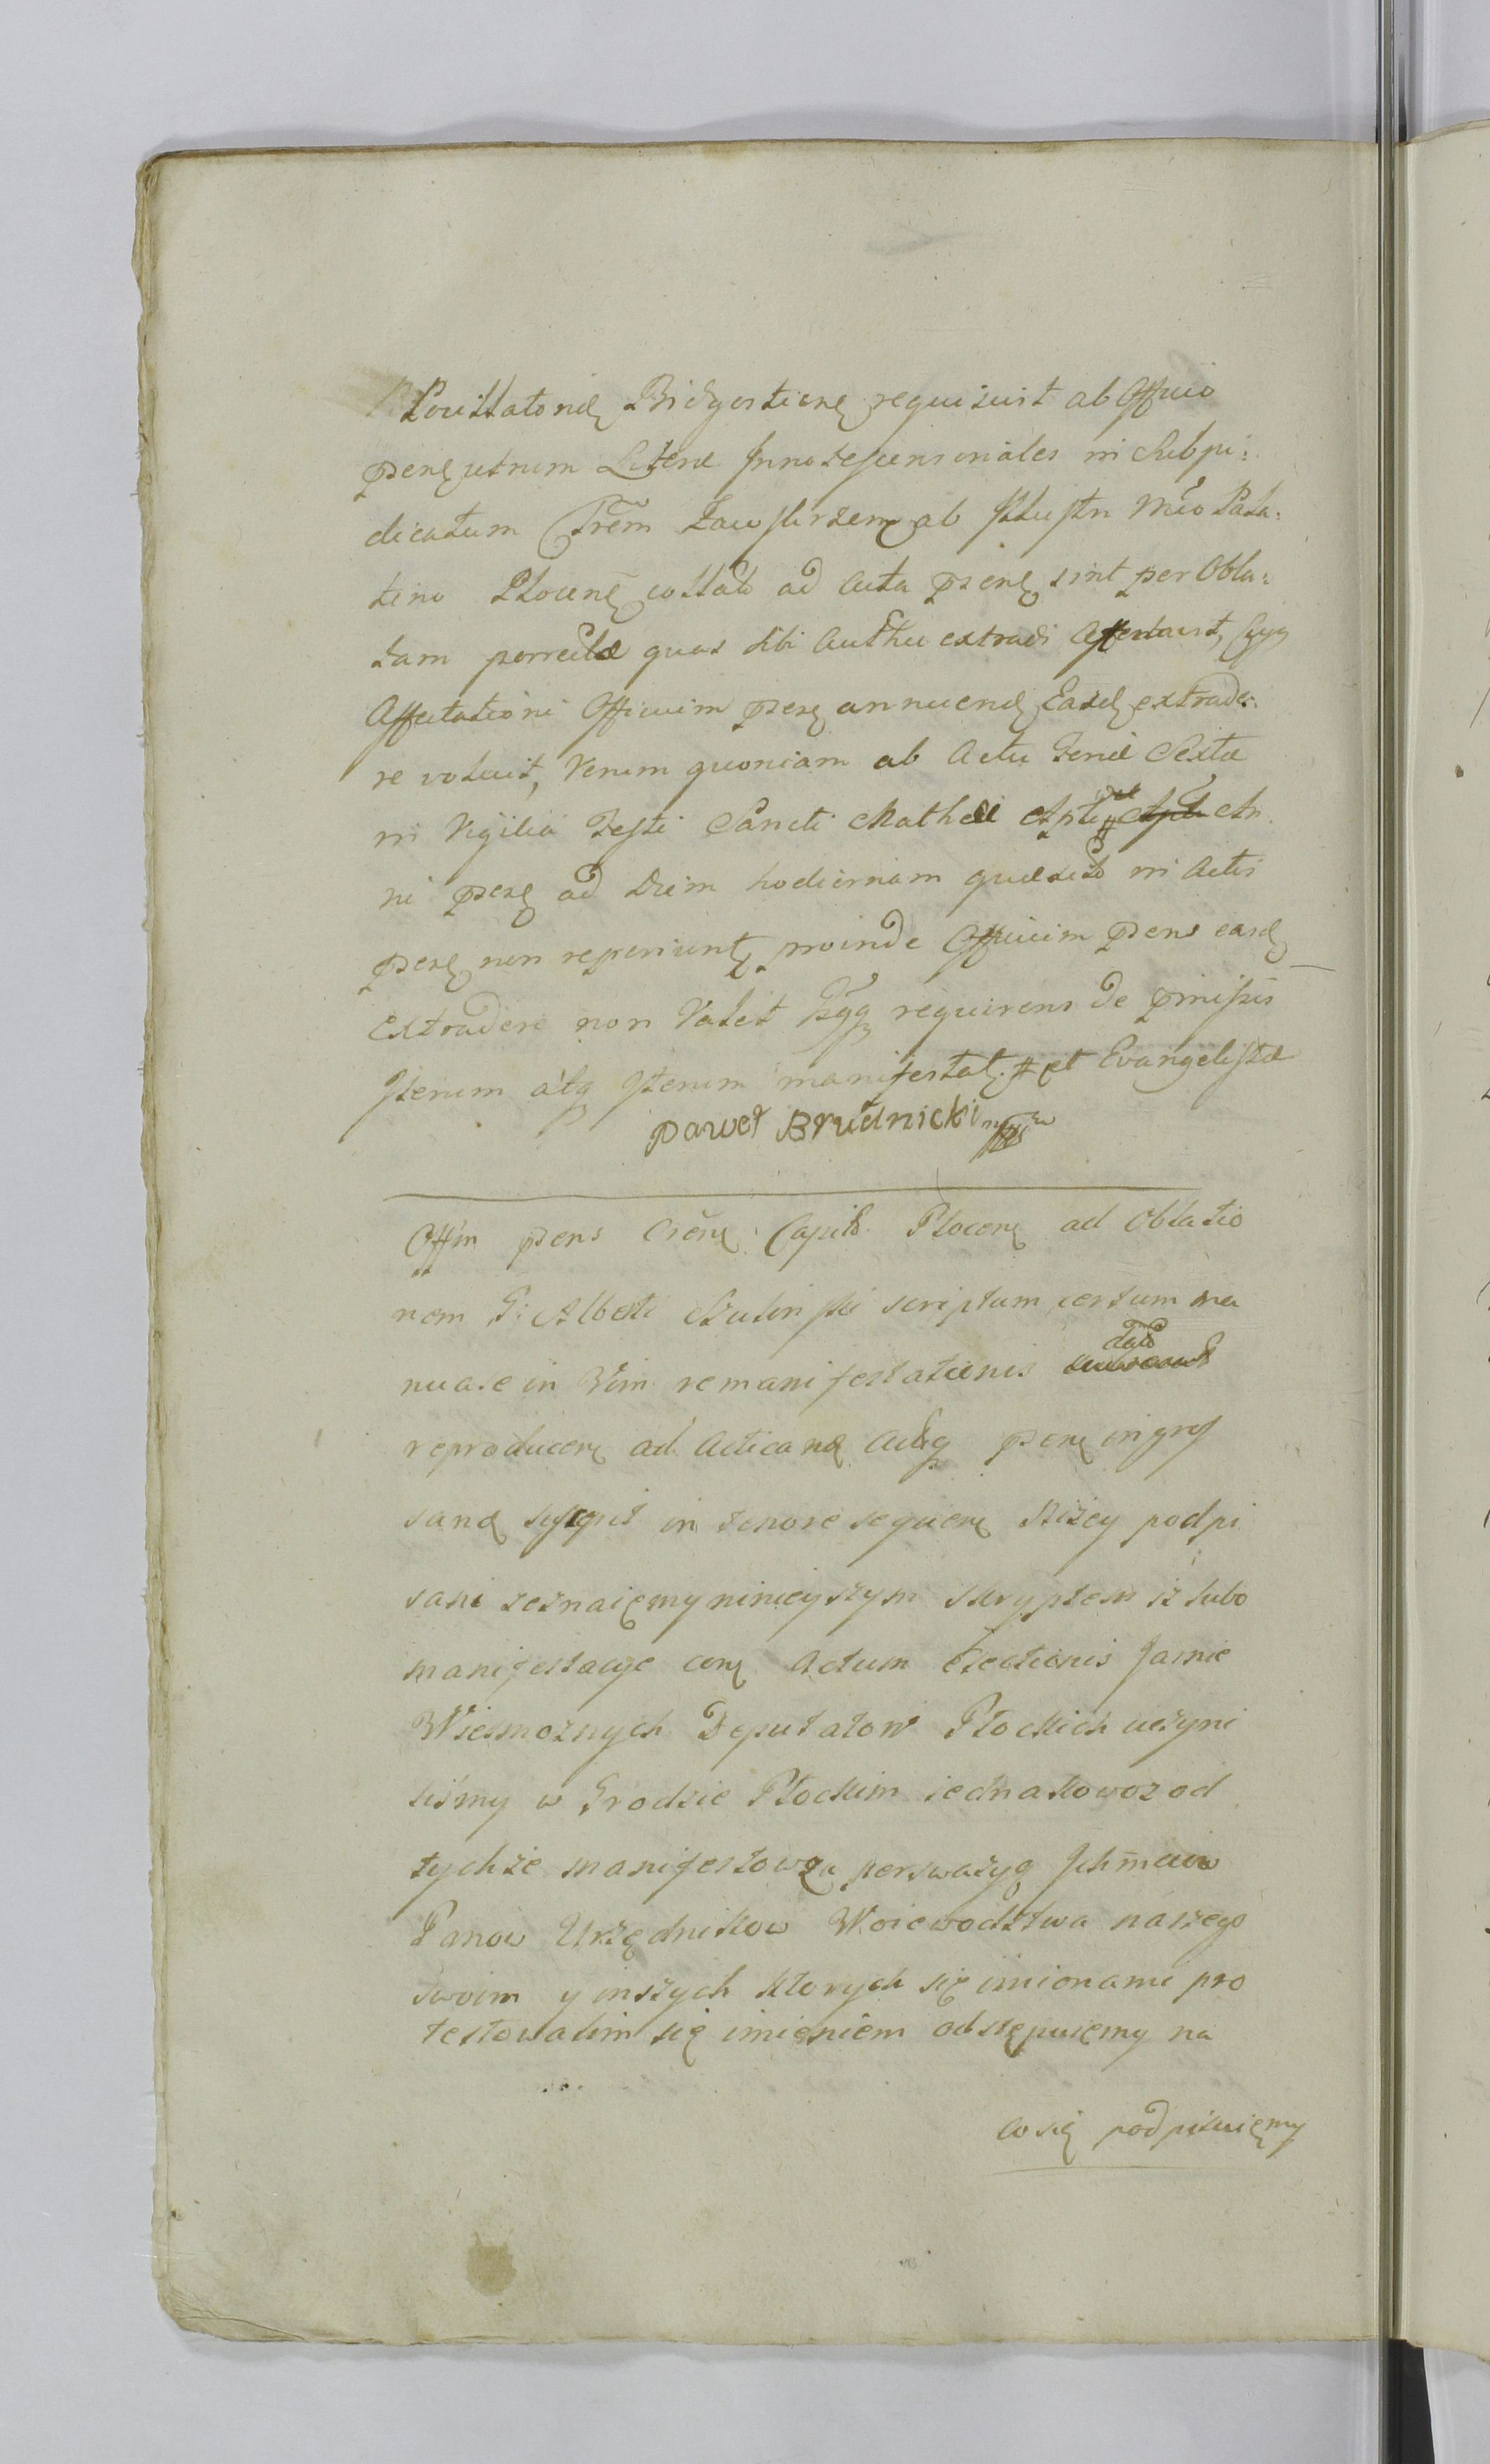 Pocillatorid Bidgostien requisivit ab Officio
Psen utrum Literæ Innotescensionales in Subju:
dicatum Trem Zawskrzen ab Illustri Mco Pala:
tino Plocen collato ad Acta Psen sint per Obla:
tam porrectæ quas sibi Authce extradi Affectavit, Cujq
Affectationi Officium Psen annuend Easd extrade:
re voluit, Verum quoniam ab Actu Feriæ Sextæ
in Vigilia Festi Sancti Mathæi Apli # An
ni Psen ad Diem hodiernam quæsitæ in Actis
Psen non reperiunt, proinde Officium Psens easd
Extradere non Valet Isqq requirens de Pmissis
Iterum atq Iterum manifestat. # et Evangelistæ
Paweł Brudnicki mppr
Offm Psens Cren Capit Plocen ad Oblatio
nem G: Alberti scriptum certum ma
nuale in Vim remanifestationis dato
reproducen ad Acticand Actisq Psen ingros
sand suscepit in tenore sequen Niżey podpi
sani zeznaięmy ninieyszym skryptem iż lubo
manifestacye con Actum Electionis Jasnie
Wielmożnych Deputatow Płockich uczyni
liśmy w Grodzie Płockim iednakowoz od
tychże manifestow za perswazyą Ichmciow
Panow Urzędnikow Woiewodztwa naszego
swoim y inszych ktorych się imionami pro
testowalim się imięniem odstępuięmy na
co się podpisuięmy